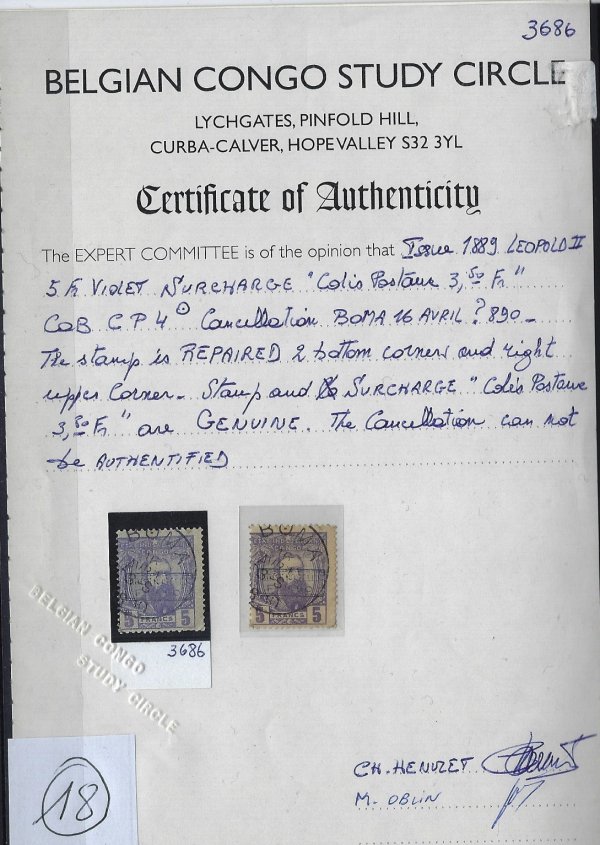 3686
BELGIAN CONGO STUDY CIRCLE
LYCHGATES, PINFOLD HILL,
CURBA-CALVER, HOPE VALLEY S32 3YL
Certificate of Authenticity
The EXPERT COMMITTEE is of the opinion that Issue 1889 LEOPOLD II
5 Fr VIOLET SURCHARGE "Colis Postaux 3,50 Fr"
COB C.P.4 Cancellation BOMA 16 AVRIL ? 890 -
The stamp is REPAIRED 2 bottom corners and right
upper corner - Stamp and SURCHARGE "Colis Postaux
3,50 Fr" are GENUINE. The Cancellation can not
be AUTHENTIFIED
BOMA
5 FRANCS 5
BOMA
5 FRANCS 5
3686
BELGIAN CONGO
STUDY CIRCLE
CH. HENUZET
M. OBLIN
18